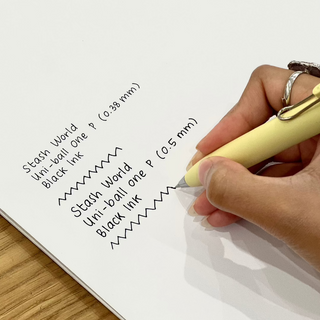 Stash World
Uni-ball one P (0.38 mm)
Black Ink
Stash World
Uni-ball one P (0.5 mm)
Black Ink